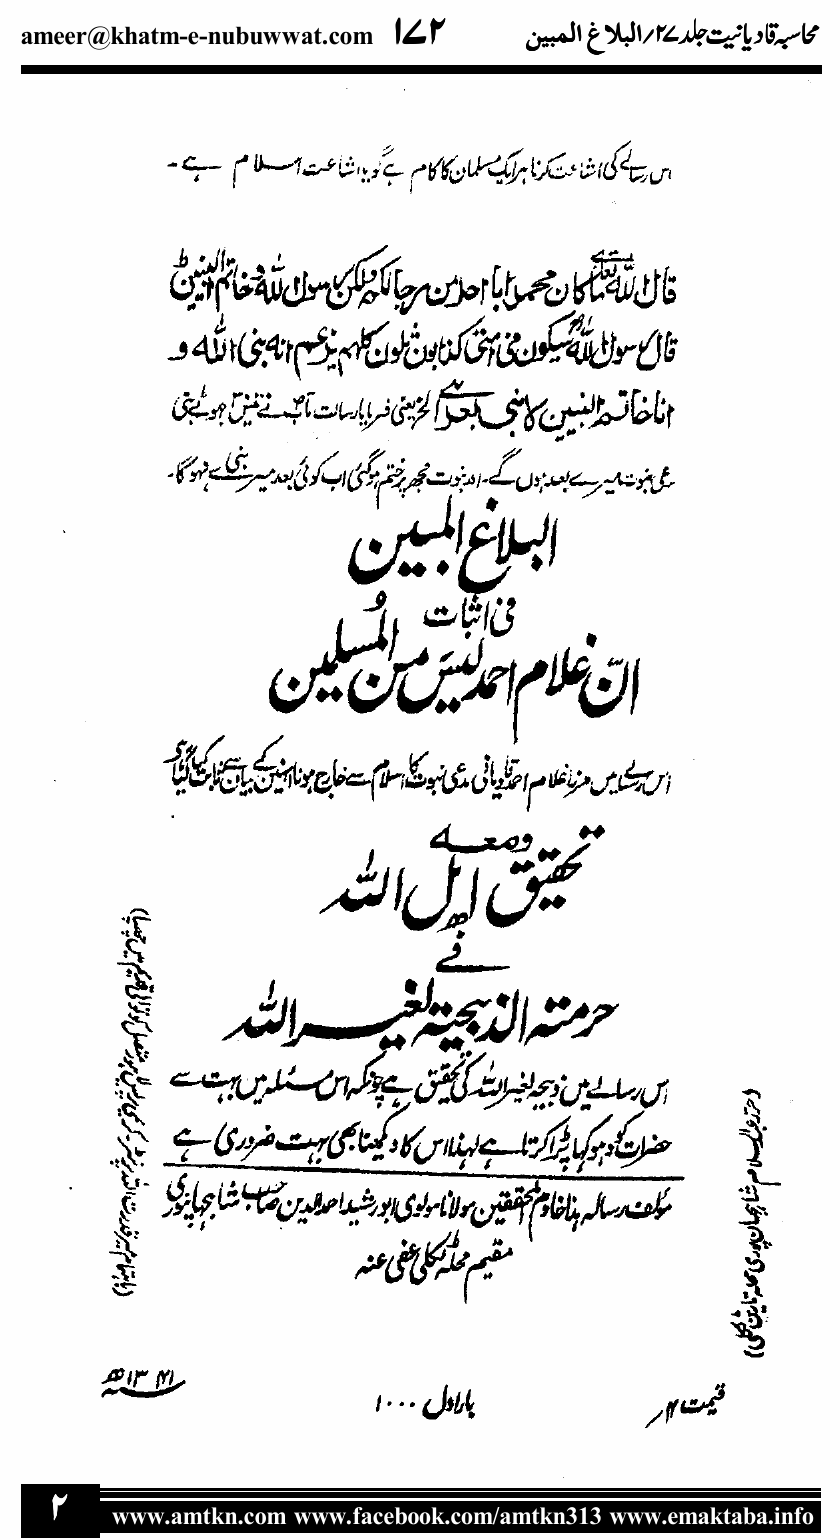 ameer@khatm-e-nubuwwat.com ۱۷۲ محاسبہ قادیانیت جلد ۲۷/البلاغ المبین
اس رسالے کی اشاعت کرنا ہر ایک مسلمان کا کام ہے گویا اشاعت اسلام ہے۔
قال اللہ تعالی ما کان محمد ابا احد من رجالکم ولکن رسول اللہ وخاتم النبیین
قال رسول اللہ سیکون فی امتی کذابون ثلثون کلہم یزعم انہ نبی اللہ و
انا خاتم النبیین لا نبی بعدی الخ یعنی فرمایا رسالت مآب نے تیس جھوٹے نبی
نبوت میرے بعد ہوں گے۔ اور نبوت مجھ پر ختم ہو گئی اب کوئی بعد میرے نبی نہ ہوگا۔
البلاغ المبین
فی اثبات
انّ غلام احمد لیسَ من المُسلمین
اس رسالے میں مرزا غلام احمد قادیانی مدعی نبوت کا اسلام سے خارج ہونا انہیں کے بیان سے ثابت کیا گیا ہے
ومعہ
تحقیق اہل اللہ
فے
حرمتہ الذبیحیتہ لغیر اللہ
اس رسالے میں ذبیحہ لغیر اللہ کی تحقیق ہے چونکہ اس مسئلہ میں بہت سے
حضرات کو دھوکہا پڑا کرتا ہے لہذا اس کا دیکھنا بھی بہت ضروری ہے
مؤلف رسالہ ہذا خادم المحققین مولانا مولوی ابو رشید احمد الدین صاحب شاہجہانپوری
مقیم محلہ ٹکلی عفی عنہ
قیمت ۴/
بار اول ۱۰۰۰
سنہ ۱۳۴۱ھ
۲ www.amtkn.com www.facebook.com/amtkn313 www.emaktaba.info